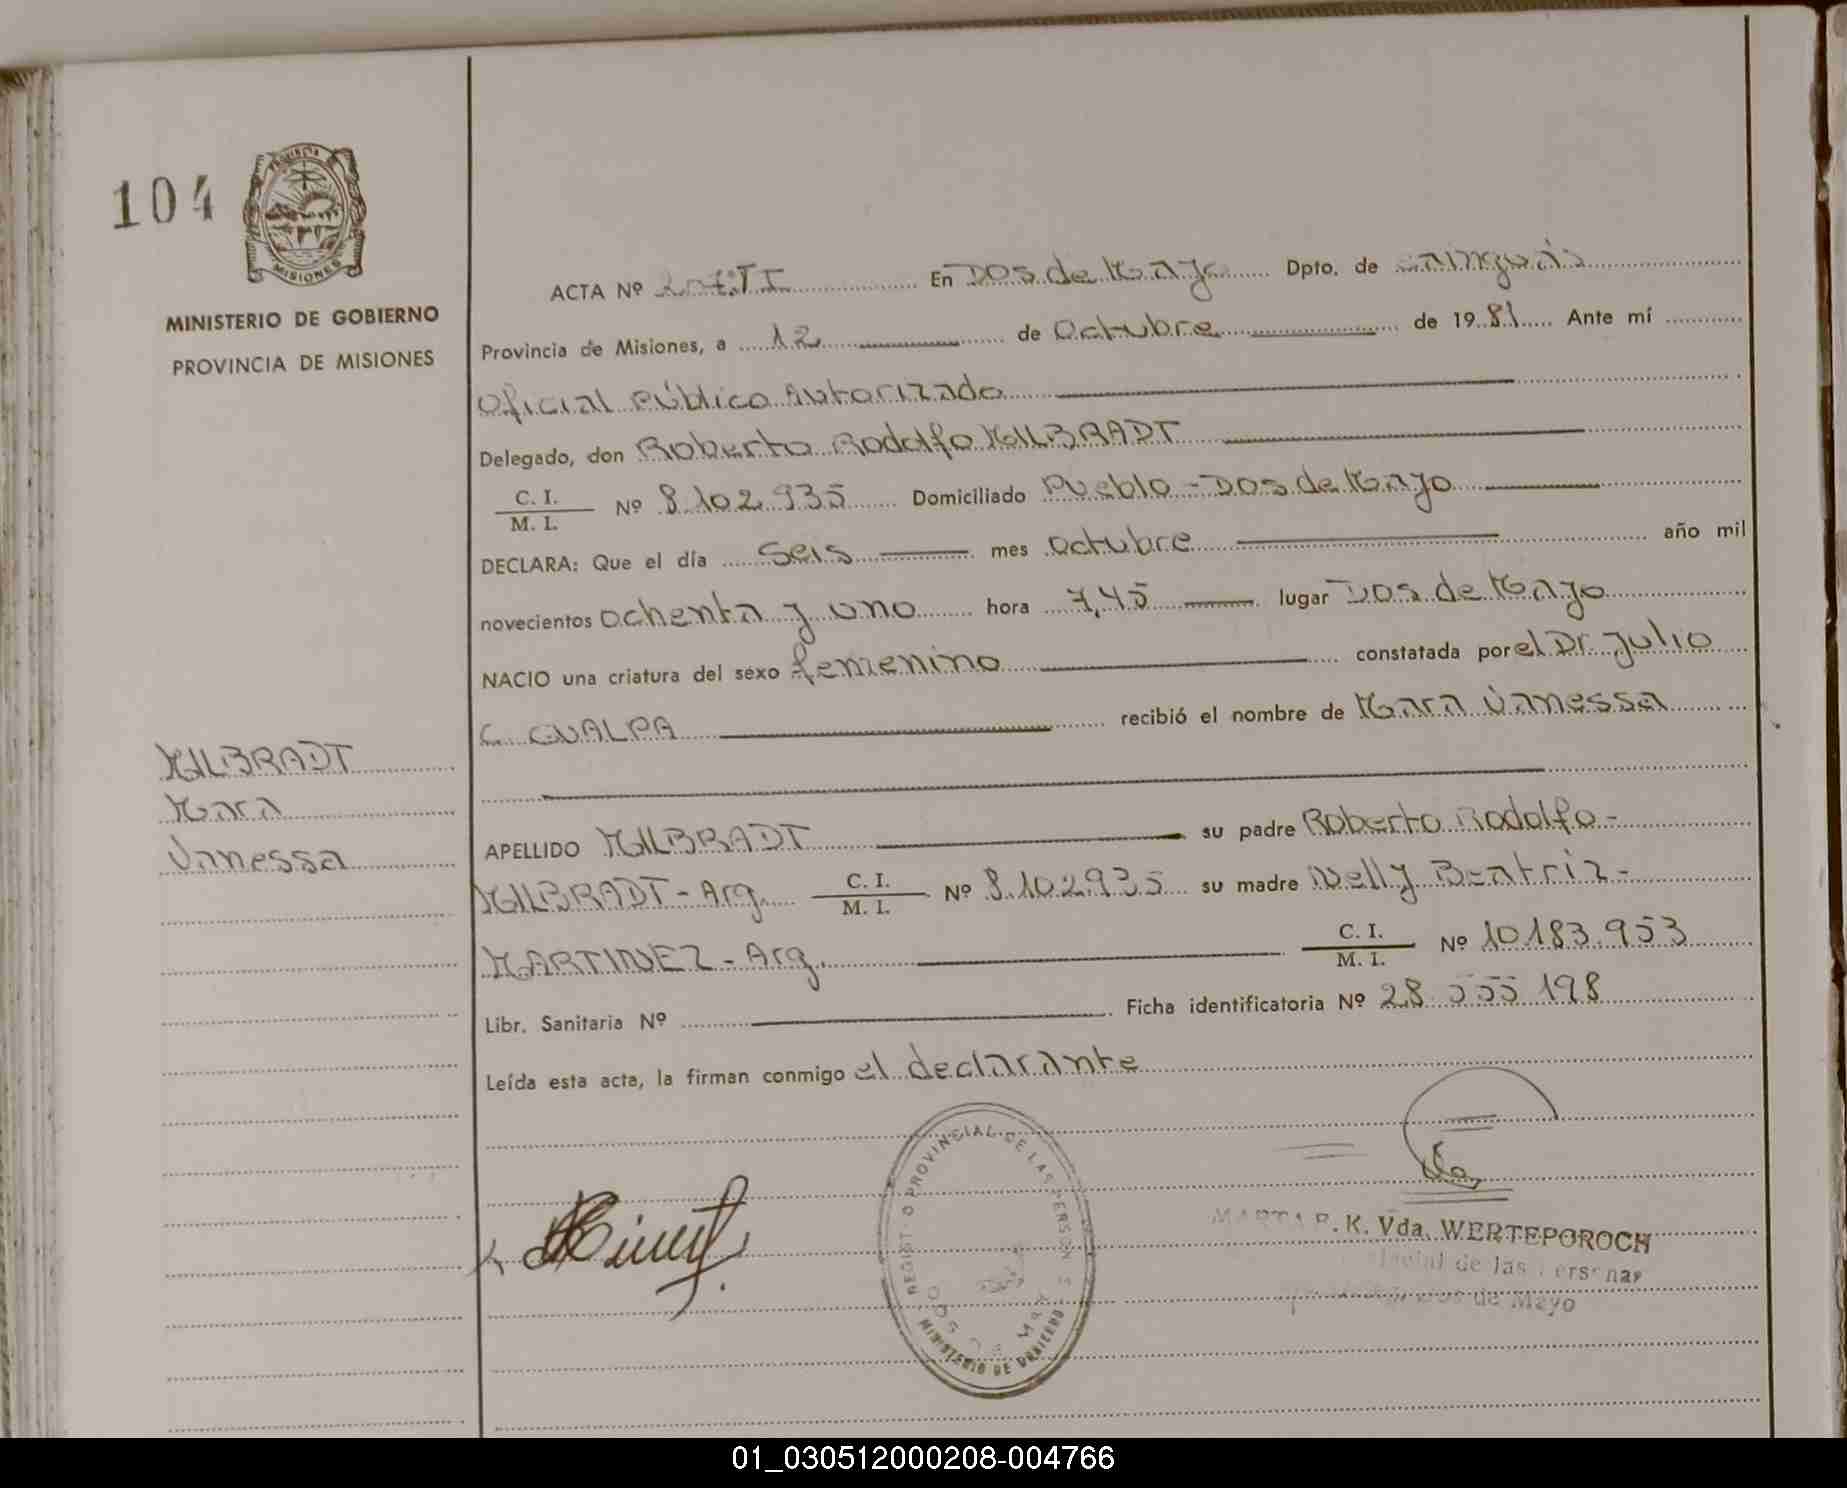 104
PROVINCIA
MISIONES
MINISTERIO DE GOBIERNO
PROVINCIA DE MISIONES
MILBRADT
Mara
Vanessa
ACTA Nº En Dos de Mayo Dpto. de Cainguás
Provincia de Misiones, a 12 de Octubre de 1981 Ante mí
Oficial Público Autorizado
Delegado, don Roberto Rodolfo MILBRADT
C. I.
M. I. Nº 8.102.935 Domiciliado Pueblo - Dos de Mayo
DECLARA: Que el día seis mes octubre año mil
novecientos ochenta y uno hora 7,45 lugar Dos de Mayo
NACIO una criatura del sexo femenino constatada por el Dr. Julio
C. GUALPA recibió el nombre de Mara Vanessa
APELLIDO MILBRADT su padre Roberto Rodolfo -
MILBRADT - Arg. C. I. M. I. Nº 8.102.935 su madre Nelly Beatriz -
MARTINEZ - Arg. C. I. M. I. Nº 10.183.953
Libr. Sanitaria Nº Ficha identificatoria Nº 28.555.198
Leída esta acta, la firman conmigo el declarante
REGIST O PROVINCIAL DE LAS PERSON S
MINISTERIO DE GOBIERNO
MARTA R. K. Vda. WERTEPOROCH
de las Personas
de Mayo
01_030512000208-004766